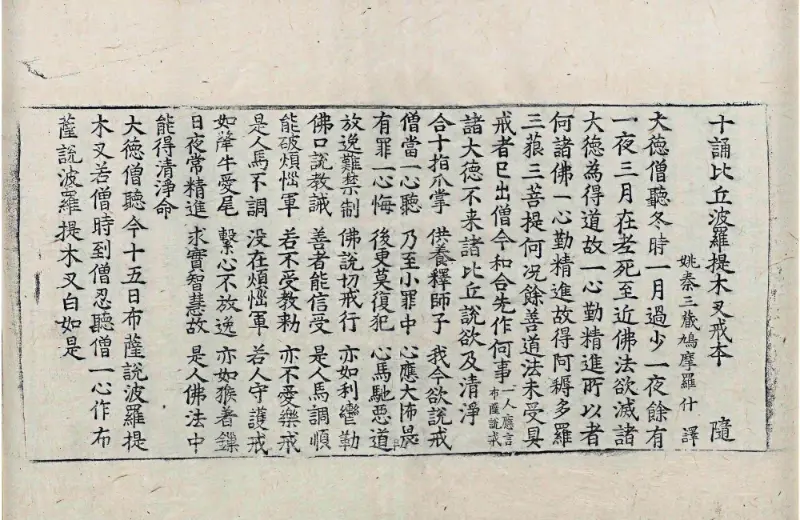 十誦比丘波羅提木叉戒本 隨
姚秦三藏鳩摩羅什 譯
大德僧聽冬時一月過少一夜餘有
一夜三月在老死至近佛法欲滅諸
大德為得道故一心勤精進所以者
何諸佛一心勤精進故得阿耨多羅
三藐三菩提何况餘善道法未受具
戒者已出僧今和合先作何事 一人應言布薩說戒
諸大德不来諸比丘說欲及清淨
合十指爪掌 供養釋師子 我今欲說戒
僧當一心聽 乃至小罪中 心應大怖畏
有罪一心悔 後更莫復犯 心馬馳惡道
放逸難禁制 佛說切戒行 亦如利轡勒
佛口說教誡 善者能信受 是人馬調順
能破煩惱軍 若不受教勅 亦不愛樂戒
是人馬不調 没在煩惱軍 若人守護戒
如犛牛愛尾 繫心不放逸 亦如猴著鏁
日夜常精進 求實智慧故 是人佛法中
能得清淨命
大德僧聽今十五日布薩說波羅提
木叉若僧時到僧忍聽僧一心作布
薩說波羅提木叉白如是